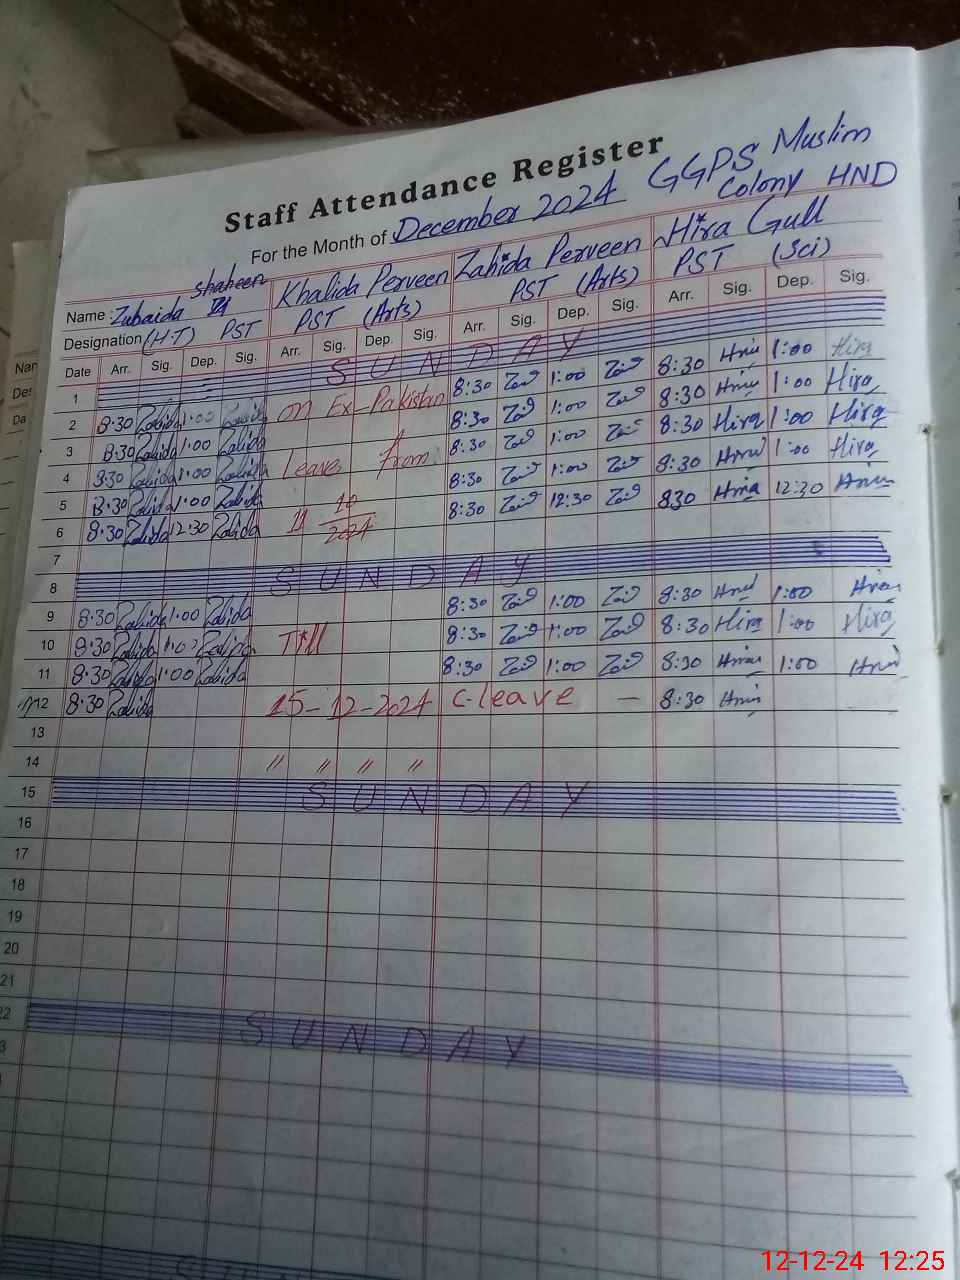 Staff Attendance Register
For the Month of December 2024 GGPS Muslim Colony HND
Name : Zubaida Shaheen Khalida Perveen Zahida Perveen Hira Gull
Designation (H.T) PST PST (Arts) PST (Arts) PST (Sci)
Date Arr. Sig. Dep. Sig. Arr. Sig. Dep. Sig. Arr. Sig. Dep. Sig. Arr. Sig. Dep. Sig.
1 SUNDAY
2 8:30 1:00 on Ex-Pakistan 8:30 1:00 8:30 1:00 Hira
3 8:30 1:00 8:30 1:00 8:30 1:00 Hira
4 8:30 1:00 Leave from 8:30 1:00 8:30 Hira 1:00 Hira
5 8:30 1:00 8:30 1:00 8:30 1:00 Hira
6 8:30 12:30 11 10 2024 8:30 12:30 830 Hira 12:30
7
8 SUNDAY
9 8:30 1:00 8:30 1:00 8:30 1:00
10 8:30 Till 8:30 1:00 8:30 Hira 1:00 Hira
11 8:30 1:00 8:30 1:00 8:30 1:00
12 8:30 15-12-2024 C-leave – 8:30
13
14 〃 〃 〃 〃
15 SUNDAY
16
17
18
19
20
21
22 SUNDAY
12-12-24 12:25